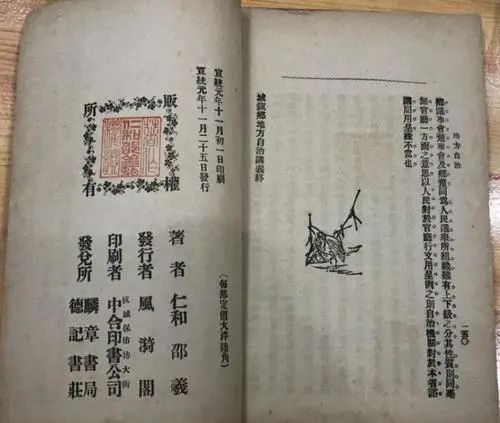 地方自治
一五〇
鄉議事會董事會及鄉董同爲人民選舉所組織雖有上下級之分其性質則同毫
無官廳一方面之意思以人民對於官廳行文用呈例之則自治機關對於本省諮
議局用呈殊不當也
城鎮鄉地方自治講義終
宣統元年十一月初一日印刷
宣統元年十一月二十五日發行
版權
所有
(每部定價大洋陸角)
著者 仁和邵羲
發行者 風漪閣
杭城保佑坊大街
印刷者 中合印書公司
發兌所 麟章書局
德記書莊